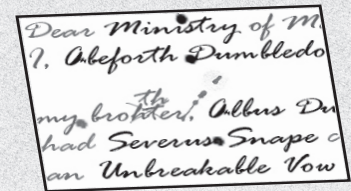 Dear Ministry of M
I, Abeforth Dumbledo
th
my brohter, Albus Du
had Severus Snape c
an Unbreakable Vow